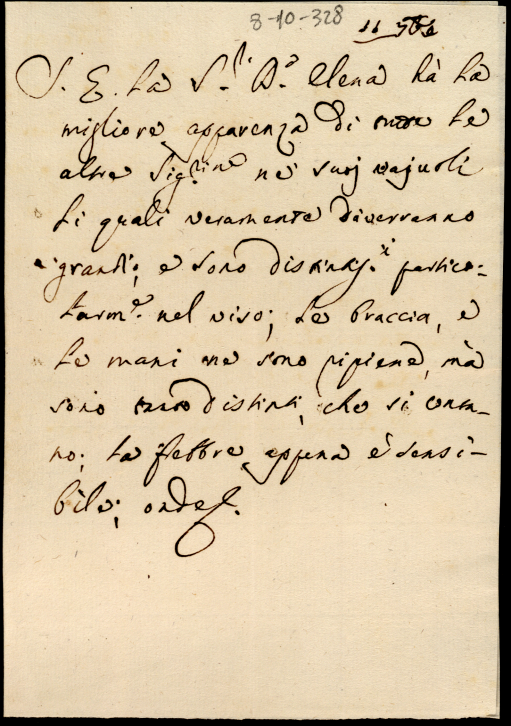 8-10-328
S. E. la S.ra D.a Elena hà la
migliore apparenza di tutte le
altre Sig.rine ne' suoj vajuoli
li quali veramente diverranno
grandi; e sono distintiss.i partico-
larm.e nel viso; le braccia, e
le mani ne sono ripiene, mà
sono tanto distinti, che si conta-
no; la febbre appena è sensi-
bile; onde